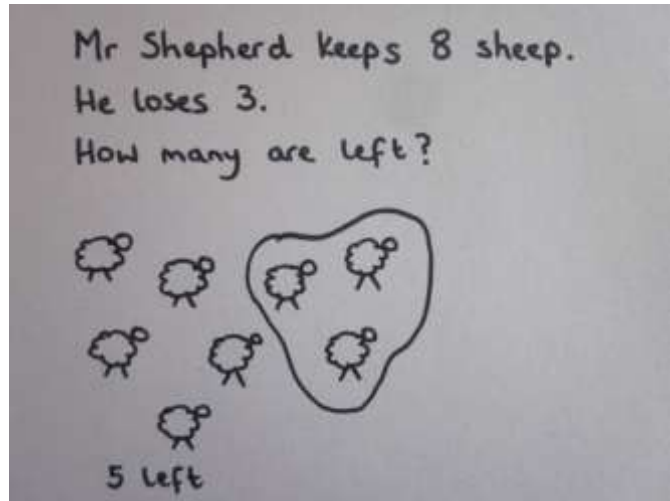 Mr Shepherd keeps 8 sheep.
He loses 3.
How many are left?
5 left